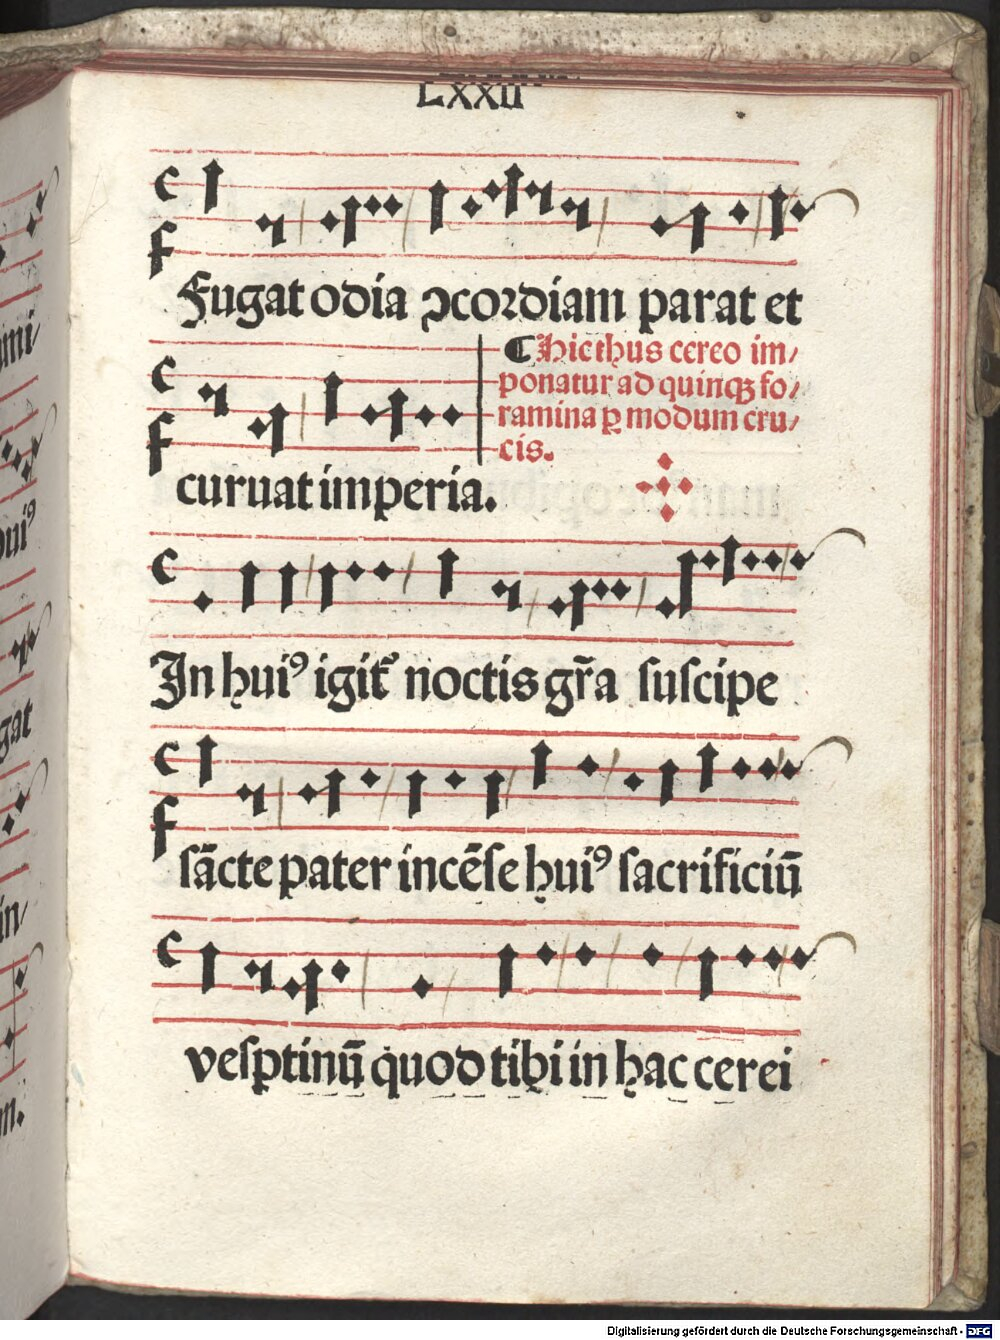 LXXII
Fugat odia ↄcordiam parat et
¶ Hic thus cereo im/
ponatur ad quinqꝫ fo/
ramina ꝑ modum cru/
cis.
curuat imperia.
In huiꝰ igit᷑ noctis gr̃a suscipe
sācte pater incēse huiꝰ sacrificiū
vesꝑtinū quod tibi in hac cerei
mi/
uiꝰ
gat
in/
m.
Digitalisierung gefördert durch die Deutsche Forschungsgemeinschaft - DFG